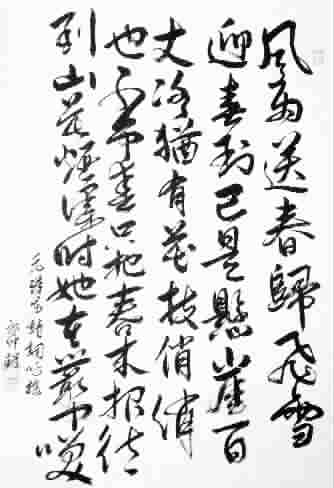 風雨送春歸飛雪
迎春到已是懸崖百
丈冰猶有花枝俏俏
也不爭春只把春來報待
到山花爛漫時她在叢中笑
毛澤東詩詞咏梅